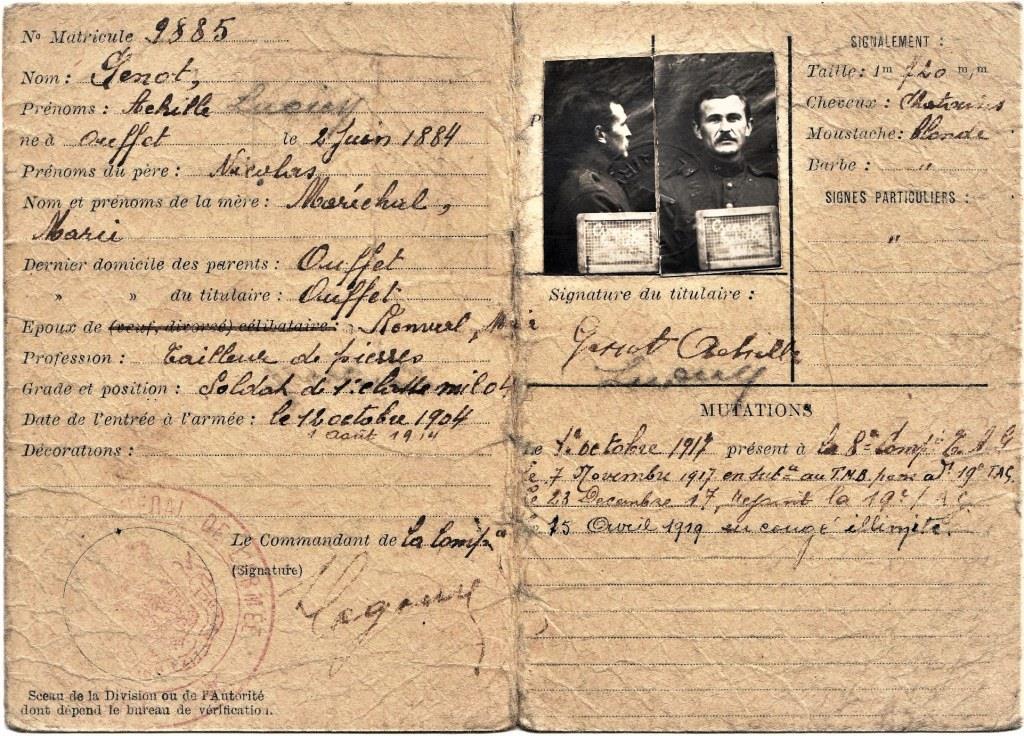 No Matricule 9885
Nom : Genot,
Prénoms : Achille Lucien
né à Ouffet le 2 Juin 1884
Prénoms du père : Nicolas
Nom et prénoms de la mère : Maréchal,
Marie
Dernier domicile des parents : Ouffet
» » du titulaire : Ouffet
Epoux de (veuf, divorcé) célibataire :
Profession : Tailleur de pierres
Grade et position : Soldat de 1e classe mil 04
Date de l'entrée à l'armée : le 12 octobre 1904
1 août 1914
Décorations :
Le Commandant de la Comp
(Signature)
Sceau de la Division ou de l'Autorité
dont dépend le bureau de vérification.
SIGNALEMENT :
Taille : 1m 720 m,m
Cheveux : Chatains
Moustache : blonde
Barbe : "
SIGNES PARTICULIERS :
"
Signature du titulaire :
Genot Achille
Lucien
MUTATIONS
Le 1e octobre 1917 présent à la 8e Comp
le 7 Novembre 1917 en au 19e T.A.C.
le 23 Decembre 17, rejoint la 19e
le 15 Avril 1919 en congé illimité.